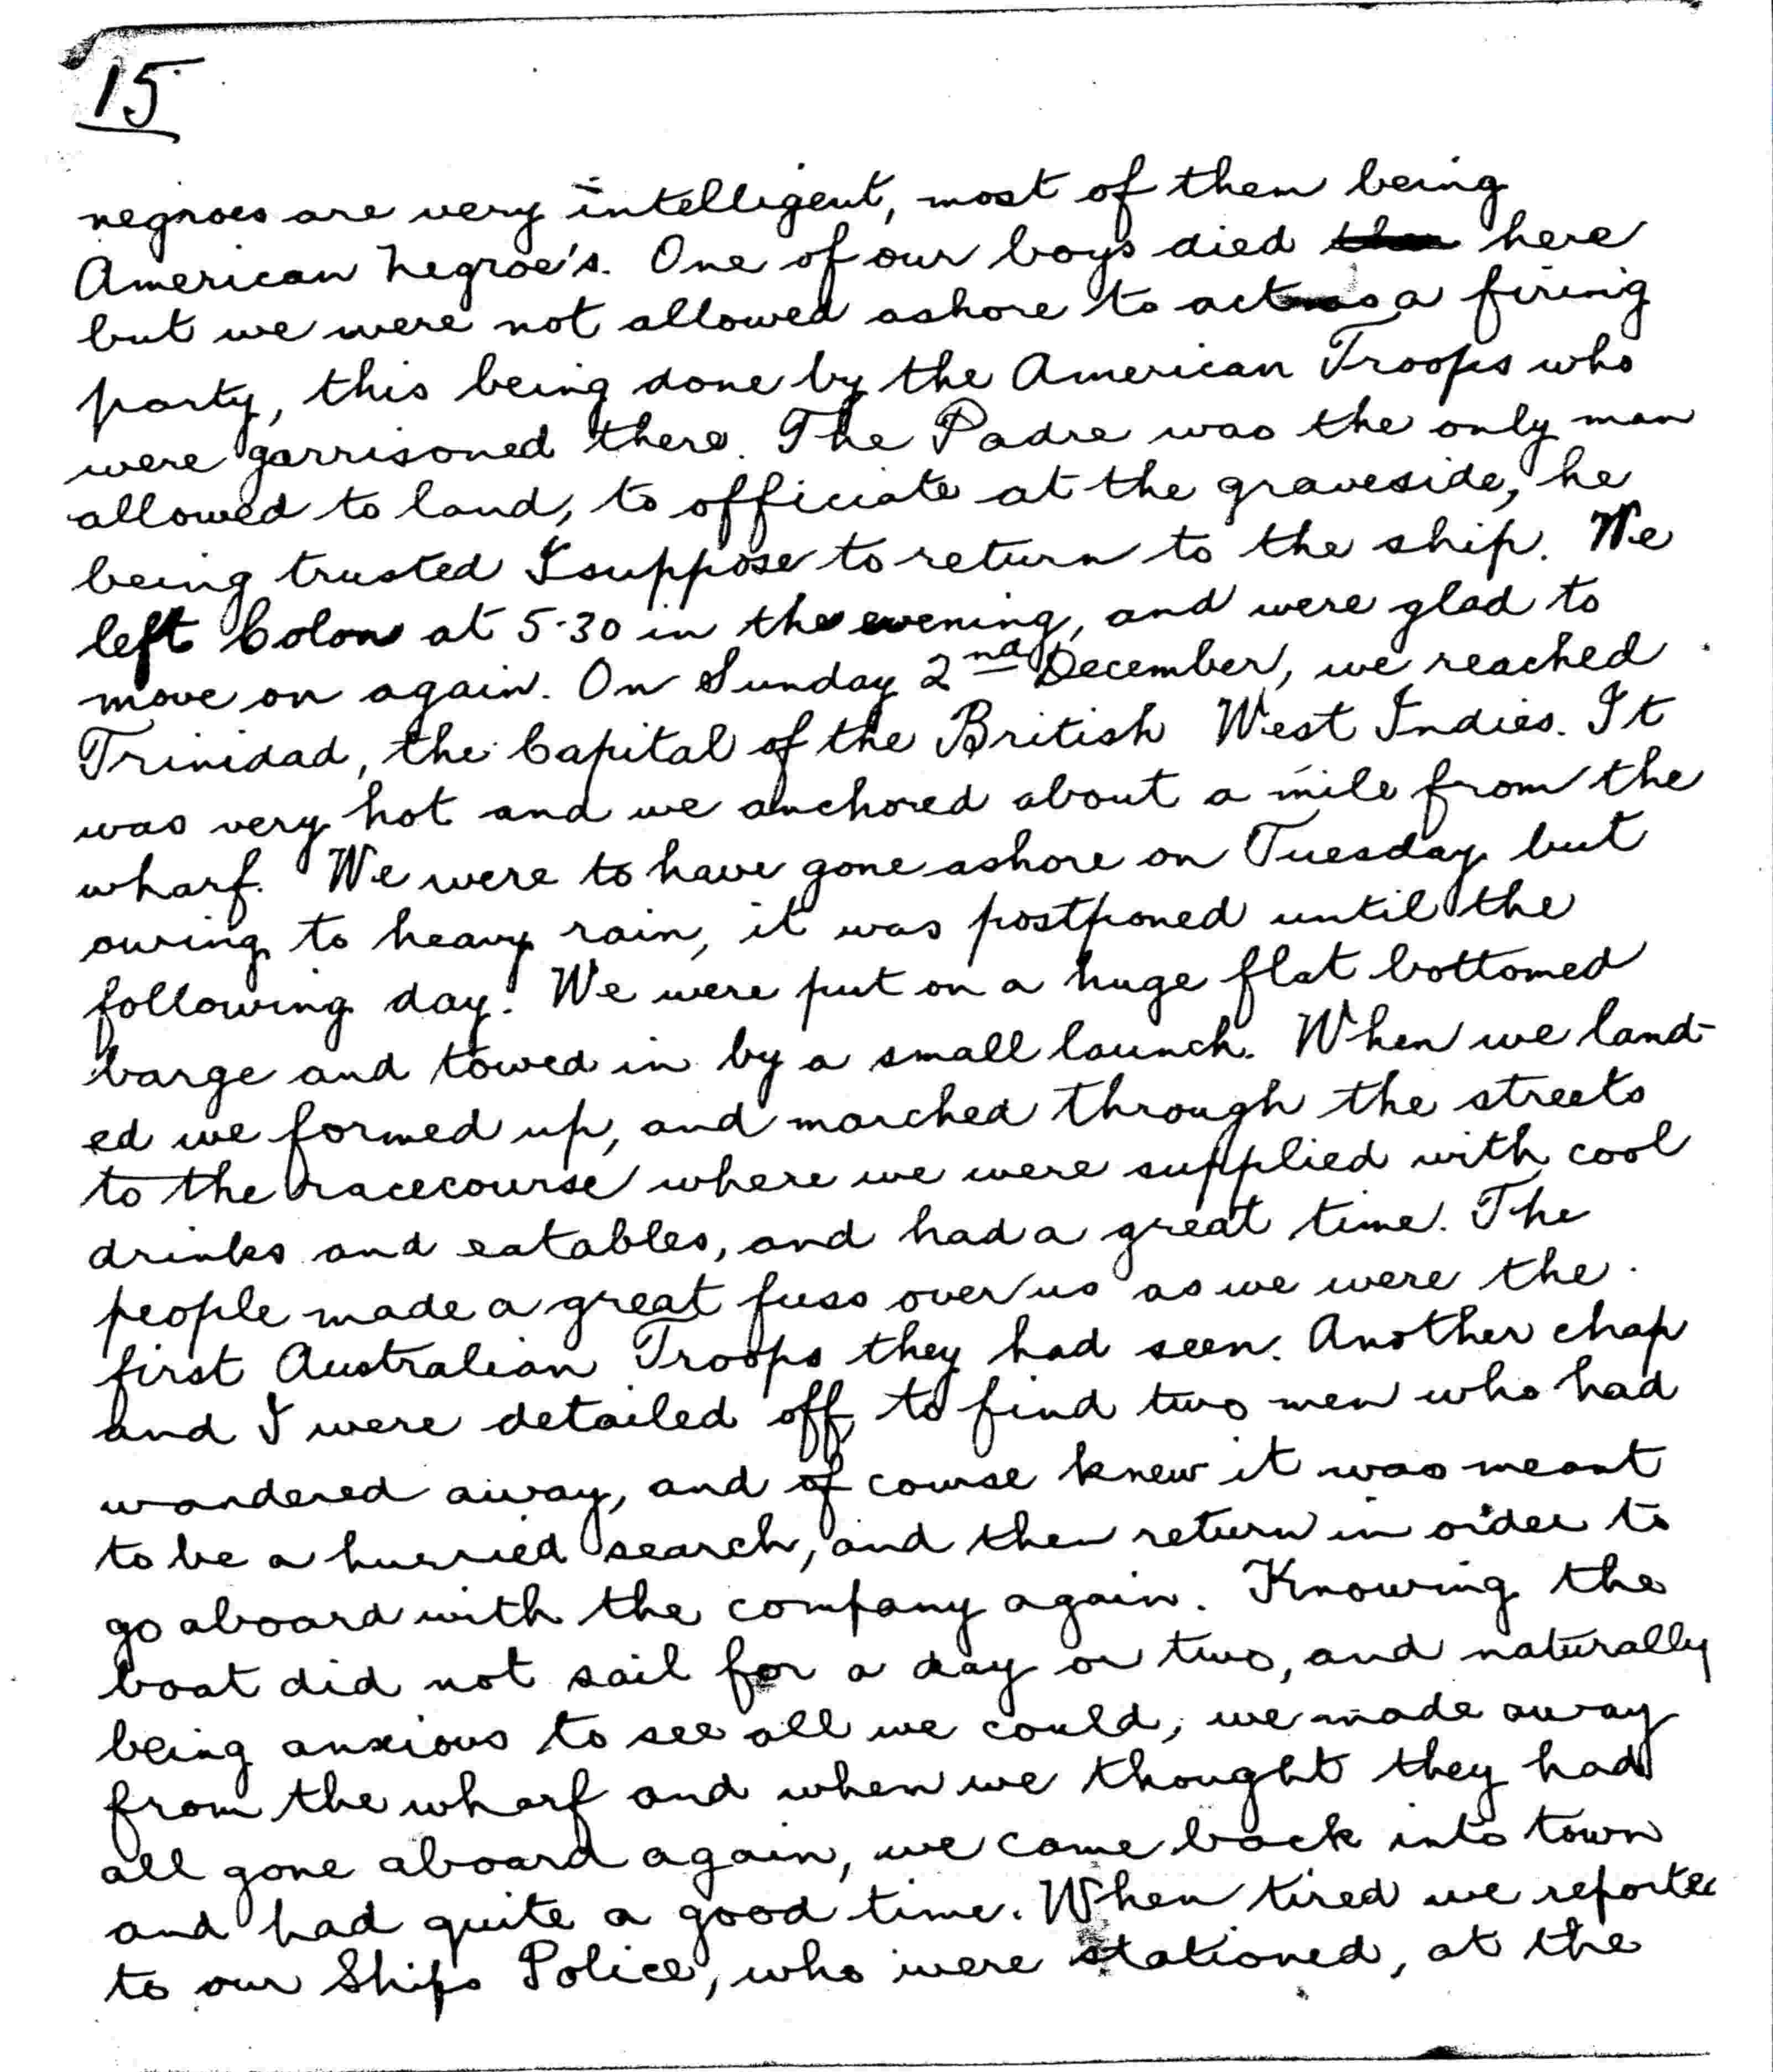 15
negroes are very intelligent, most of them being
American Negroe's. One of our boys died here
but we were not allowed ashore to act as a firing
party, this being done by the American Troops who
were garrisoned there. The Padre was the only man
allowed to land, to officiate at the graveside, he
being trusted I suppose to return to the ship. We
left Colon at 5-30 in the evening, and were glad to
move on again. On Sunday 2nd December, we reached
Trinidad, the Capital of the British West Indies. It
was very hot and we anchored about a mile from the
wharf. We were to have gone ashore on Tuesday but
owing to heavy rain, it was postponed until the
following day. We were put on a huge flat bottomed
barge and towed in by a small launch. When we land-
ed we formed up, and marched through the streets
to the racecourse where we were supplied with cool
drinks and eatables, and had a great time. The
people made a great fuss over us as we were the
first Australian Troops they had seen. Another chap
and I were detailed off, to find two men who had
wandered away, and of course knew it was meant
to be a hurried search, and then return in order to
go aboard with the company again. Knowing the
boat did not sail for a day or two, and naturally
being anxious to see all we could, we made away
from the wharf and when we thought they had
all gone aboard again, we came back into town
and had quite a good time. When tired we reported
to our Ships Police, who were stationed, at the